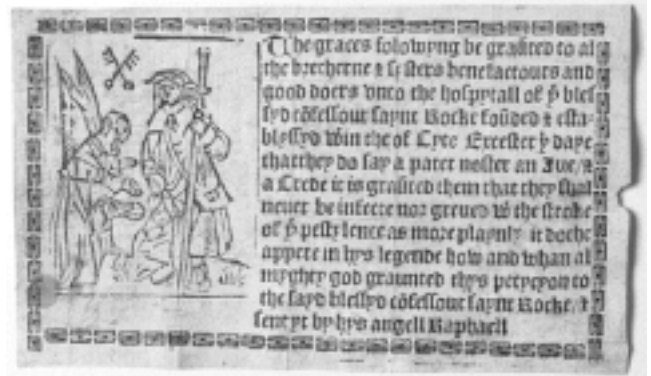 The graces folowyng be grāūted to al
the bretherne & systers benefactours and
good doers vnto the hospytall of yͤ bles
syd cōfessour saynt Rocke foūded & esta-
blyssyd wͭin the of Cyte Excester yͤ daye
thatthey do say a pater noster an Aue/&
a Crede it is graūted them that they shal
neuer be infecte nor greued wͭ the stroke
of yͤ pestylence as more playnly it dothe
appere in hys legende how and whan al
myghty god graunted thys petycyon to
the sayd blessyd cōfessour saynt Rocke/&
sent yt by hys angell Raphaell